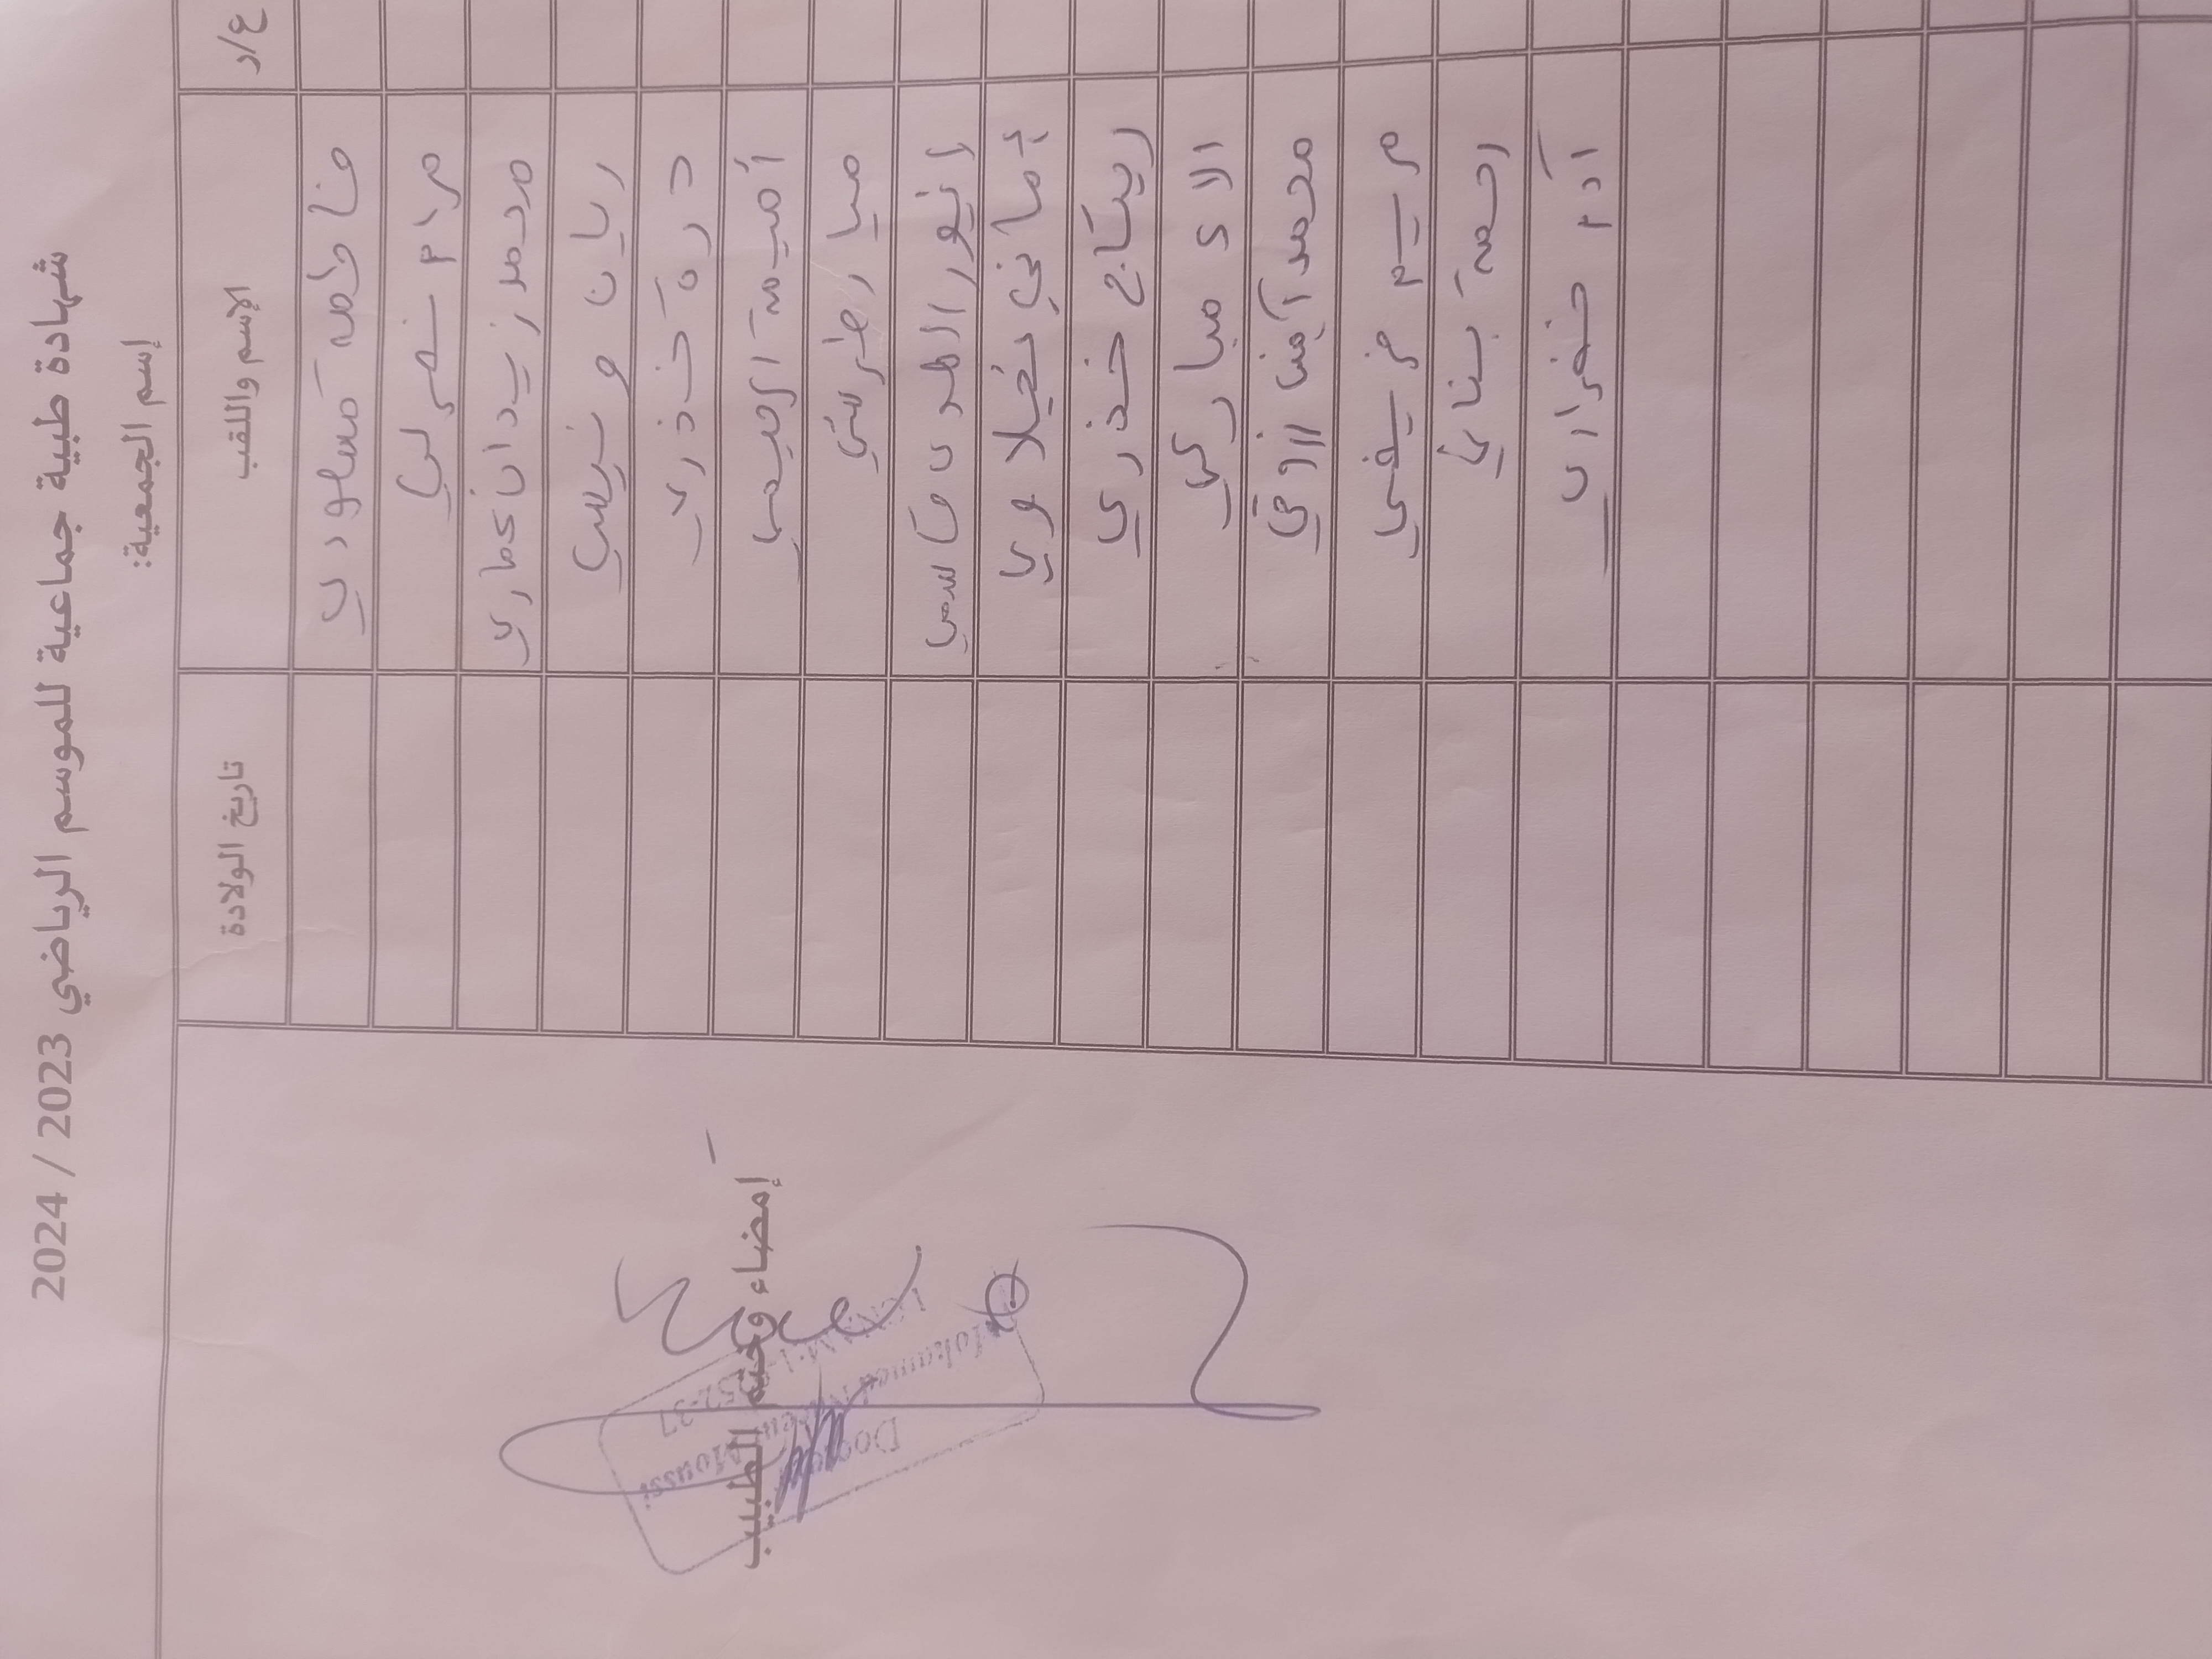 شهادة طبية جماعية للموسم الرياضي 2023 / 2024
إسم الجمعية:
ع/ر الإسم واللقب تاريخ الولادة
فاطمة مسعودي
مرام نصرلي
محمد زيدان كماري
ريان ونيسي
درة خذري
أميمة الرحيمي
ميار طرشي
أنيور الهدى قاسمي
أماني نخيلاوي
ريتاج خذري
الاء مباركي
محمد آمين رزوقي
مريم غريفي
رحمة بناني
آدم خضراوي
إمضاء وختم الطبيب
Docteur
Mohamed Moussi